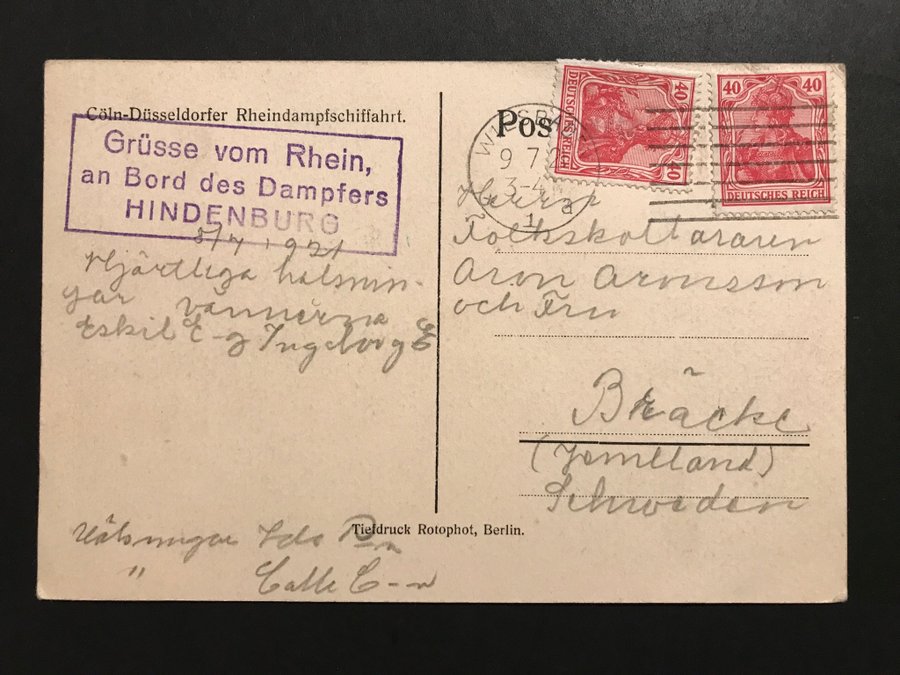 Cöln-Düsseldorfer Rheindampfschiffahrt.
Grüsse vom Rhein,
an Bord des Dampfers
HINDENBURG
8/7 1921
Hjärtliga hälsnin-
gar vännerna
Eskil E-g Ingeborg E
Hälsningar Ida
" Calle C-n
Tiefdruck Rotophot, Berlin.
Pos
WIESBA
9 7
3-4
1 a
40
DEUTSCHES REICH
40
40 40
DEUTSCHES REICH
Herrn
Folkskolläraren
Aron Aronsson
och Fru
Bräcke
(Jemtland)
Schweden